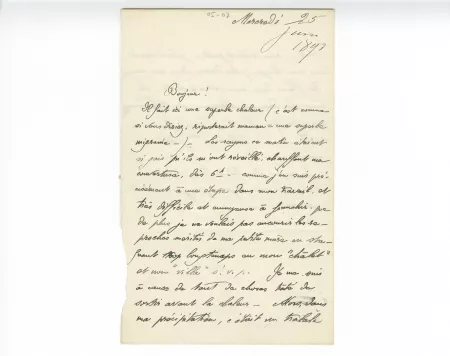 05-07
Mercredi 25
juin
1897
Bonjour!
Il fait ici une superbe chaleur (c'est comme
si vous disiez, riposterait maman "une superbe
migraine"-) - Les rayons ce matin étaient
si gais qu'ils m'ont réveillé, chauffant ma
couverture, dès 6h - comme j'en suis pré-
cisément à une étape dans mon travail, et
très difficile et ennuyeuse à franchir, que
de plus je ne voulais pas encourir les re-
proches mérités de ma petite mère en
longtemps au mon "chalet"
et mon "villa" s.v.p. Je me suis
à cause de tout de choses hâté de
sortir avant la chaleur - Mais, dans
ma précipitation, c'était un